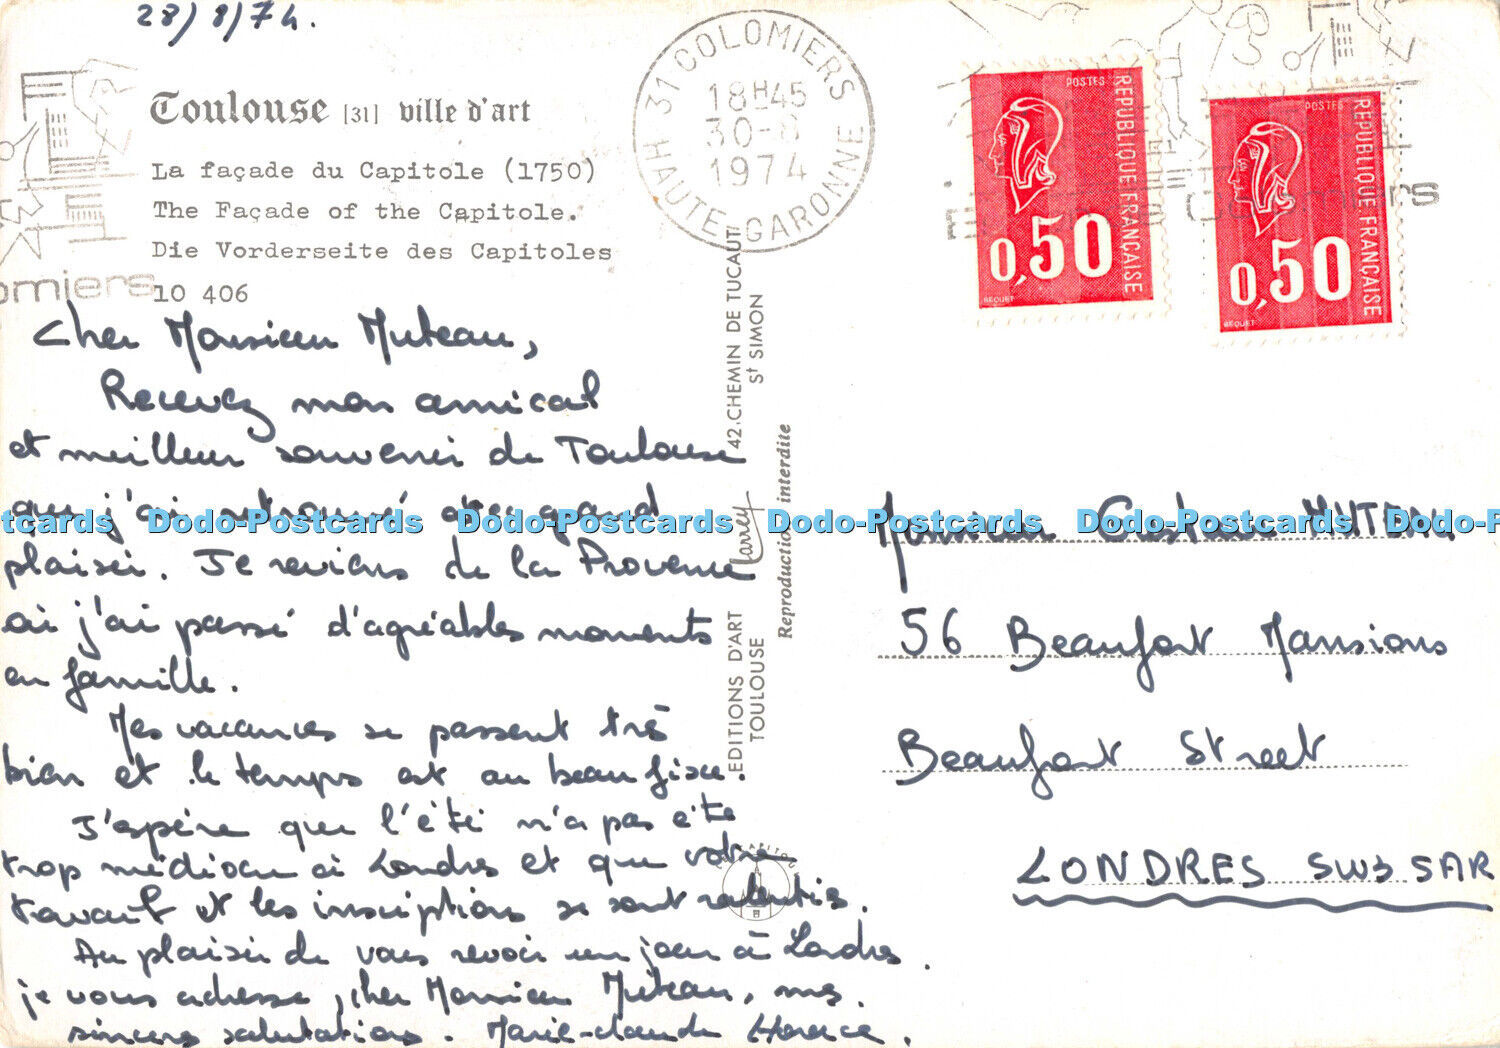 28/8/74.
Toulouse [31] ville d'art
La façade du Capitole (1750)
The Façade of the Capitole.
Die Vorderseite des Capitoles
10 406
omiers
31 COLOMIERS
18H45
30-8
1974
HAUTE-GARONNE
POSTES
REPUBLIQUE FRANÇAISE
0,50
BEQUET
POSTES
REPUBLIQUE FRANÇAISE
0,50
BEQUET
Cher Monsieur Muteau,
Recevez mon amical
et meilleur souvenir de Toulouse
que j'ai retrouvé avec grand
plaisir. Je reviens de la Provence
où j'ai passé d'agréables moments
en famille.
Mes vacances se passent très
bien et le temps est au beau fixe.
J'espère que l'été n'a pas été
trop médiocre à Londres et que votre
travail et les inscriptions se sont ralentis.
Au plaisir de vous revoir un jour à Londres.
je vous adresse, cher Monsieur Muteau, mes
sincères salutations. Marie-Claude
EDITIONS D'ART Larrey 42, CHEMIN DE TUCAUT
TOULOUSE St SIMON
Reproduction interdite
Monsieur Gustave MUTEAU
56 Beaufort Mansions
Beaufort Street
LONDRES SW3 5AR
tcards Dodo-Postcards Dodo-Postcards Dodo-Postcards Dodo-Postcards Dodo-P